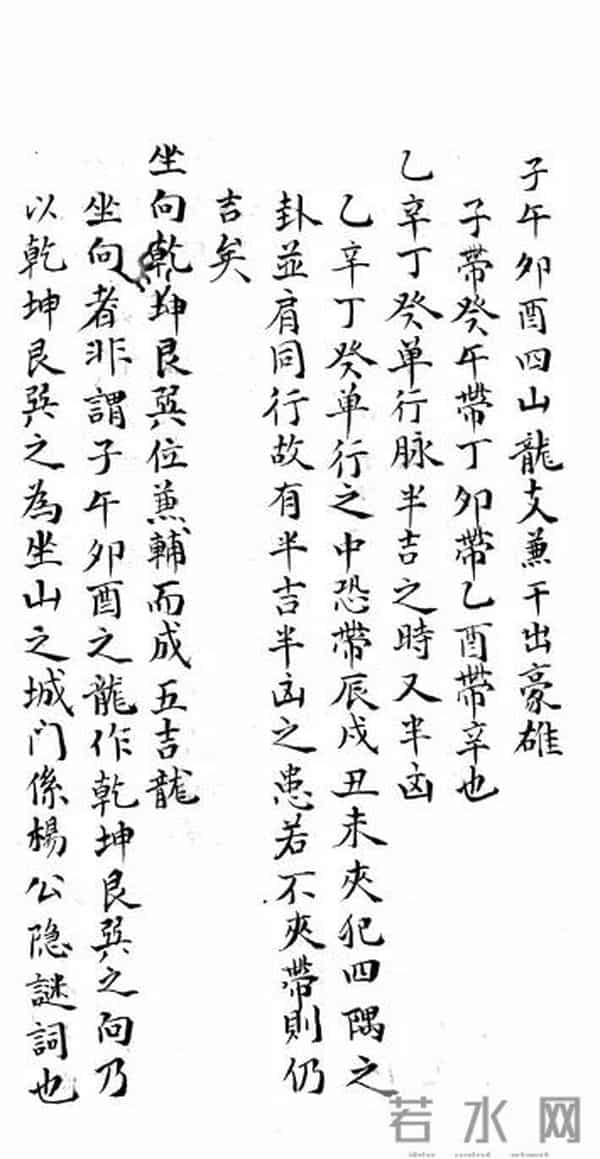 子午卯酉四山龍支兼干出豪雄
子帶癸午帶丁卯帶乙酉帶辛也
乙辛丁癸单行脉半吉之時又半凶
乙辛丁癸单行之中恐帶辰戌丑未夾犯四隅之
卦並肩同行故有半吉半凶之患若不夾帶則仍
吉矣
坐向乾坤艮巽位兼輔而成五吉龍
坐向者非謂子午卯酉之龍作乾坤艮巽之向乃
以乾坤艮巽之為坐山之城门係楊公隐謎詞也
若水网